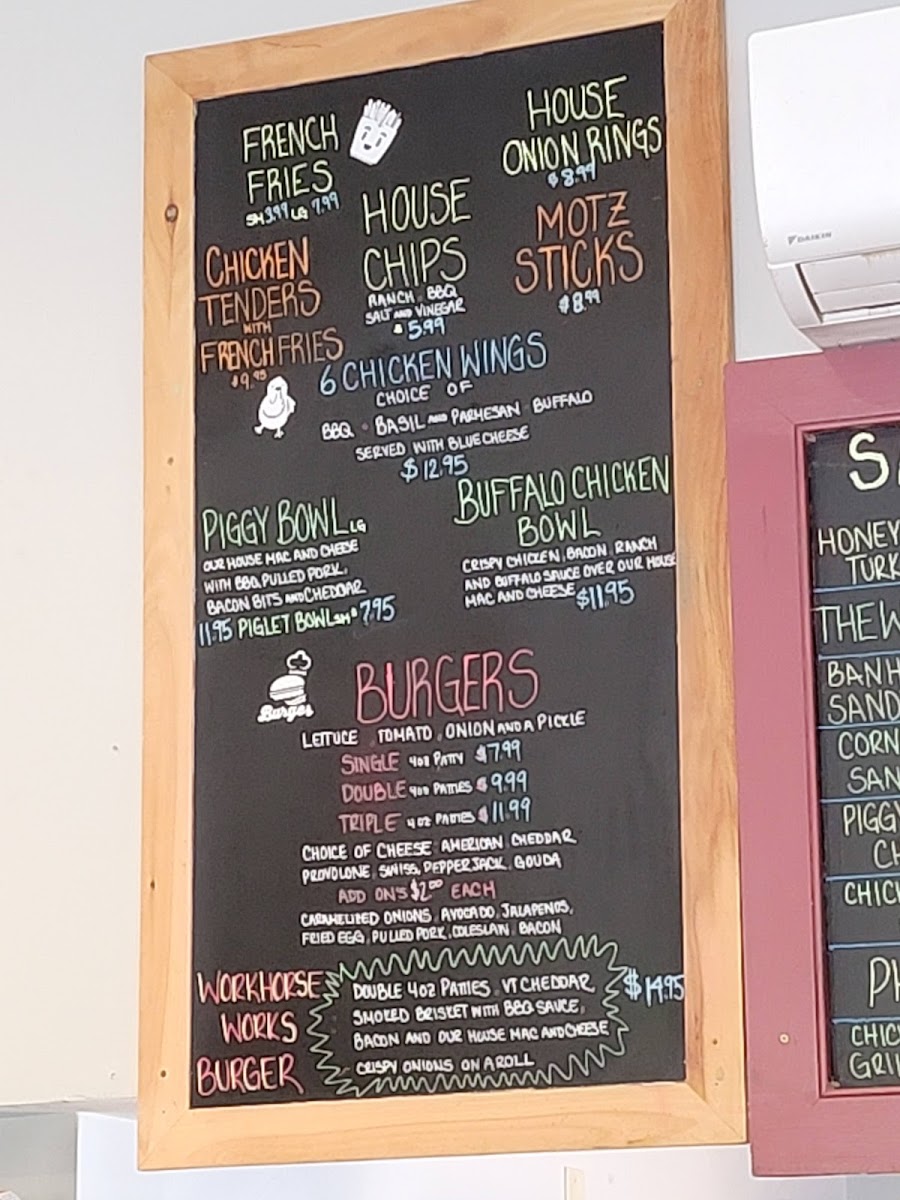 FRENCH
FRIES
SM 3.99 LG 7.99
HOUSE
ONION RINGS
$8.99
HOUSE
CHIPS
RANCH BBQ
SALT AND VINEGAR
$5.99
MOTZ
STICKS
$8.99
CHICKEN
TENDERS
WITH
FRENCH FRIES
$9.95
6 CHICKEN WINGS
CHOICE OF
BBQ • BASIL AND PARMESAN BUFFALO
SERVED WITH BLUE CHEESE
$12.95
PIGGY BOWL LG
OUR HOUSE MAC AND CHEESE
WITH BBQ PULLED PORK,
BACON BITS AND CHEDDAR
11.95 PIGLET BOWL SM $7.95
BUFFALO CHICKEN
BOWL
CRISPY CHICKEN, BACON, RANCH
AND BUFFALO SAUCE OVER OUR HOUSE
MAC AND CHEESE $11.95
Burger
BURGERS
LETTUCE, TOMATO, ONION AND A PICKLE
SINGLE 4OZ PATTY $7.99
DOUBLE 4OZ PATTIES $9.99
TRIPLE 4OZ PATTIES $11.99
CHOICE OF CHEESE AMERICAN CHEDDAR
PROVOLONE, SWISS, PEPPER JACK, GOUDA
ADD ON'S $2.00 EACH
CARAMELIZED ONIONS, AVOCADO, JALAPENOS,
FRIED EGG, PULLED PORK, COLESLAW, BACON
WORKHORSE
WORKS
BURGER
DOUBLE 4OZ PATTIES, VT CHEDDAR,
SMOKED BRISKET WITH BBQ SAUCE,
BACON AND OUR HOUSE MAC AND CHEESE
CRISPY ONIONS ON A ROLL
$14.95
DAIKIN
HONEY
THE W
BANH
SAND
CORN
SAN
PIGGY
CH
CHIC
PH
CHIC
GRI